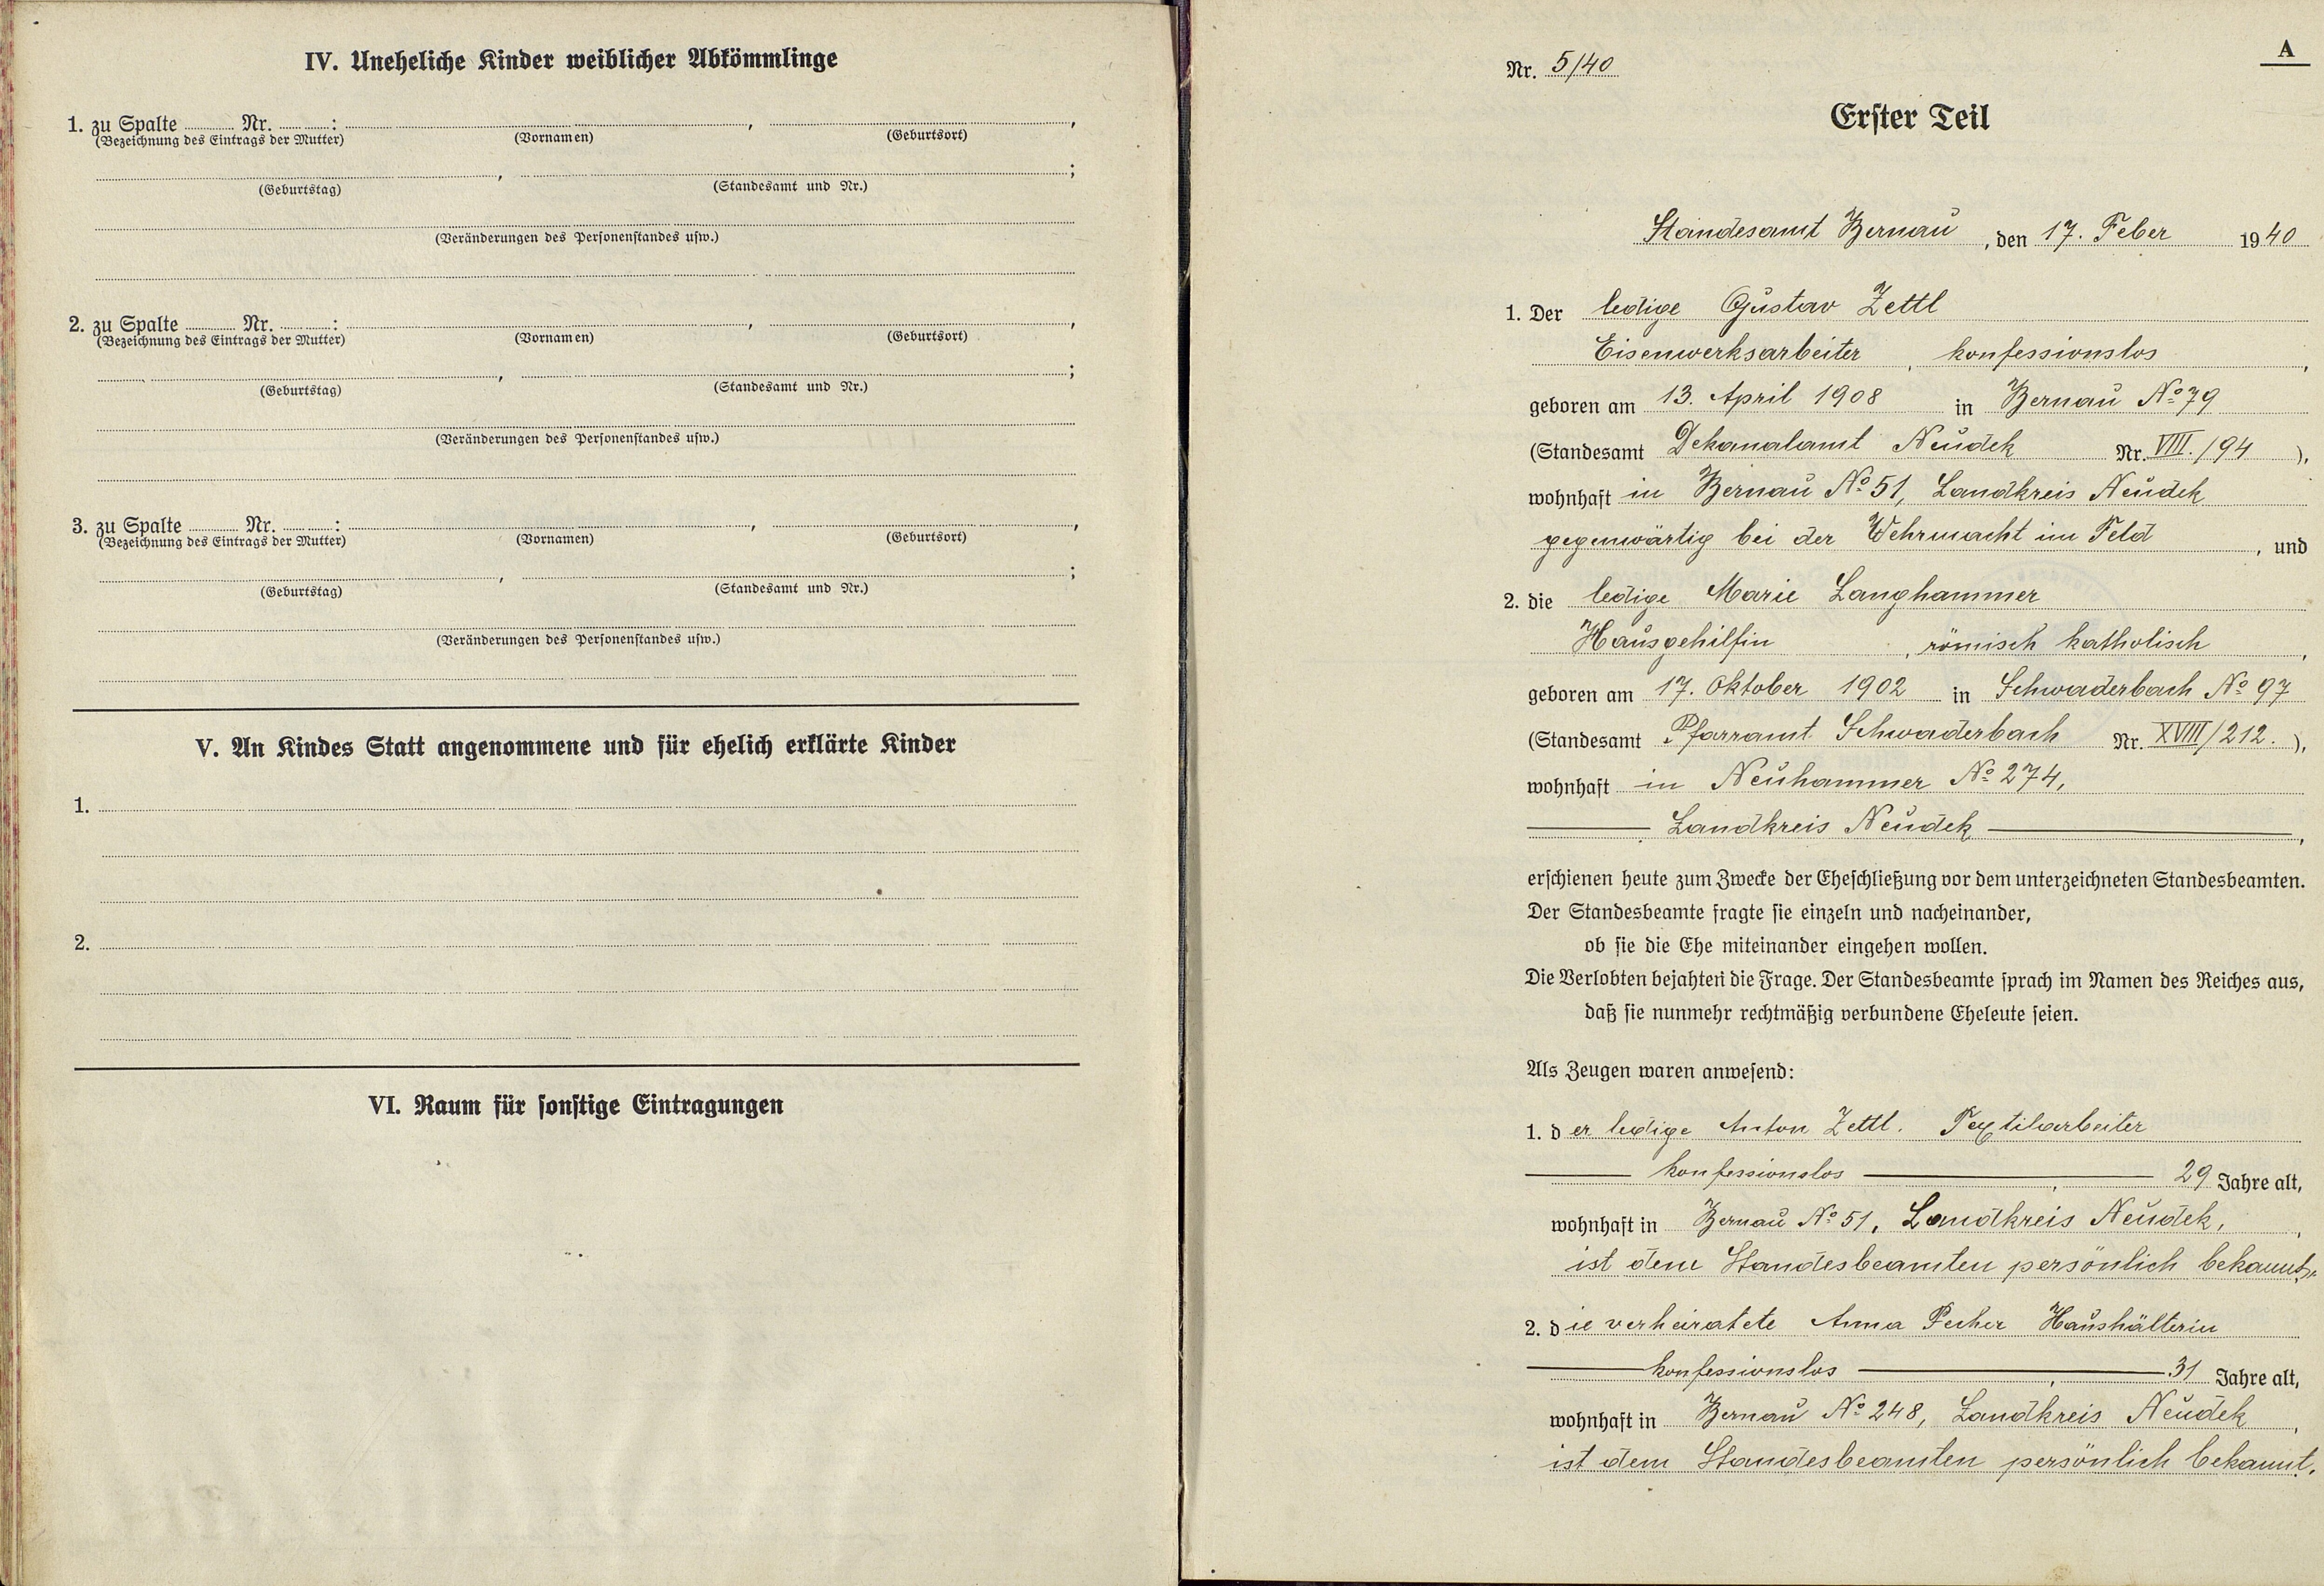 IV. Uneheliche Kinder weiblicher Abkömmlinge
1. zu Spalte ......... Nr. .........: ........., .........,
(Bezeichnung des Eintrags der Mutter) (Vornamen) (Geburtsort)
........., .........;
(Geburtstag) (Standesamt und Nr.)
(Veränderungen des Personenstandes usw.)
2. zu Spalte ......... Nr. .........: ........., .........,
(Bezeichnung des Eintrags der Mutter) (Vornamen) (Geburtsort)
........., .........;
(Geburtstag) (Standesamt und Nr.)
(Veränderungen des Personenstandes usw.)
3. zu Spalte ......... Nr. .........: ........., .........,
(Bezeichnung des Eintrags der Mutter) (Vornamen) (Geburtsort)
........., .........;
(Geburtstag) (Standesamt und Nr.)
(Veränderungen des Personenstandes usw.)
V. An Kindes Statt angenommene und für ehelich erklärte Kinder
1.
2.
VI. Raum für sonstige Eintragungen
A
Nr. 5/40
Erster Teil
Standesamt Bernau, den 17. Feber 1940
1. Der ledige Gustav Zettl
Eisenwerksarbeiter, konfessionslos,
geboren am 13. April 1908 in Bernau No 79
(Standesamt Dekanalamt Neudek Nr. VIII./94),
wohnhaft in Bernau No 51, Landkreis Neudek
gegenwärtig bei der Wehrmacht im Feld, und
2. die ledige Marie Langhammer
Hausgehilfin, römisch katholisch,
geboren am 17. Oktober 1902 in Schwaderbach No 97
(Standesamt Pfarramt Schwaderbach Nr. XVIII/212.),
wohnhaft in Neuhammer No 274,
Landkreis Neudek,
erschienen heute zum Zwecke der Eheschließung vor dem unterzeichneten Standesbeamten.
Der Standesbeamte fragte sie einzeln und nacheinander,
ob sie die Ehe miteinander eingehen wollen.
Die Verlobten bejahten die Frage. Der Standesbeamte sprach im Namen des Reiches aus,
daß sie nunmehr rechtmäßig verbundene Eheleute seien.
Als Zeugen waren anwesend:
1. der ledige Anton Zettl. Textilarbeiter
konfessionslos, 29 Jahre alt,
wohnhaft in Bernau No 51, Landkreis Neudek,
ist dem Standesbeamten persönlich bekannt,
2. die verheiratete Anna Pecher Haushälterin
konfessionslos, 31 Jahre alt,
wohnhaft in Bernau No 248, Landkreis Neudek,
ist dem Standesbeamten persönlich bekannt.